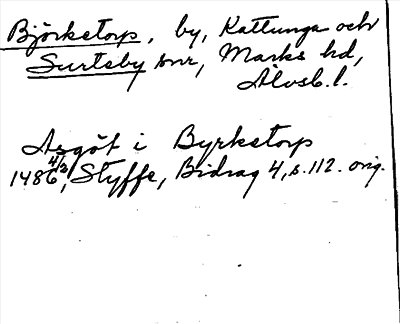 Björketorp, by, Kattunga och
Surteby snr, Marks hd,
Älvsb. l.
Asgöt i Byrketorp
1486 4/2, Styffe, Bidrag 4, s. 112. orig.